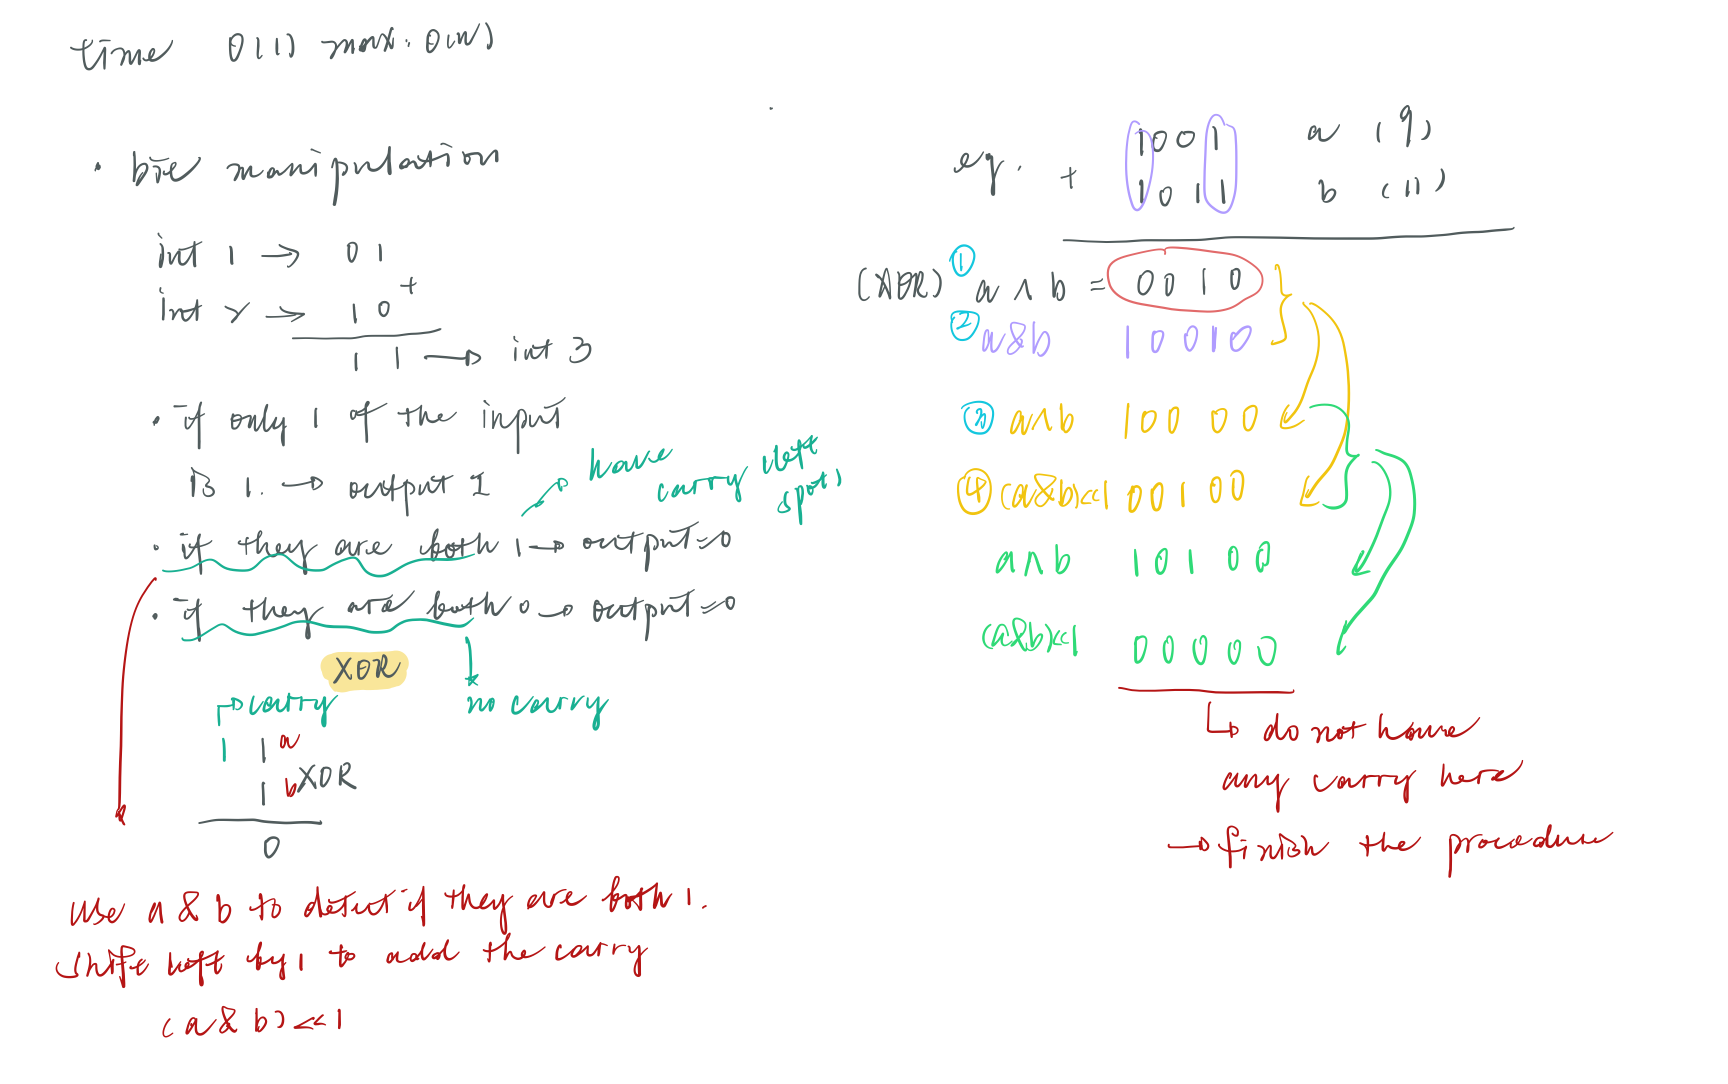 time O(1) max: O(N)
• bit manipulation
int 1 → 0 1
int 2 → 1 0 +
1 1 → int 3
• if only 1 of the input
is 1. → output 1
→ have carry (left spot)
• if they are both 1 → output = 0
• if they are both 0 → output = 0
XOR
→ carry
no carry
1 1 a
1 b XOR
0
Use a & b to detect if they are both 1.
Shift left by 1 to add the carry
(a & b) << 1
eg. + 1001 a (9)
1011 b (11)
(XOR) ① a ^ b = 0010
② a&b 10010
③ a^b 100 00
④ (a&b)<<1 00100
a^b 10100
(a&b)<<1 00000
↳ do not have
any carry here
→ finish the procedure